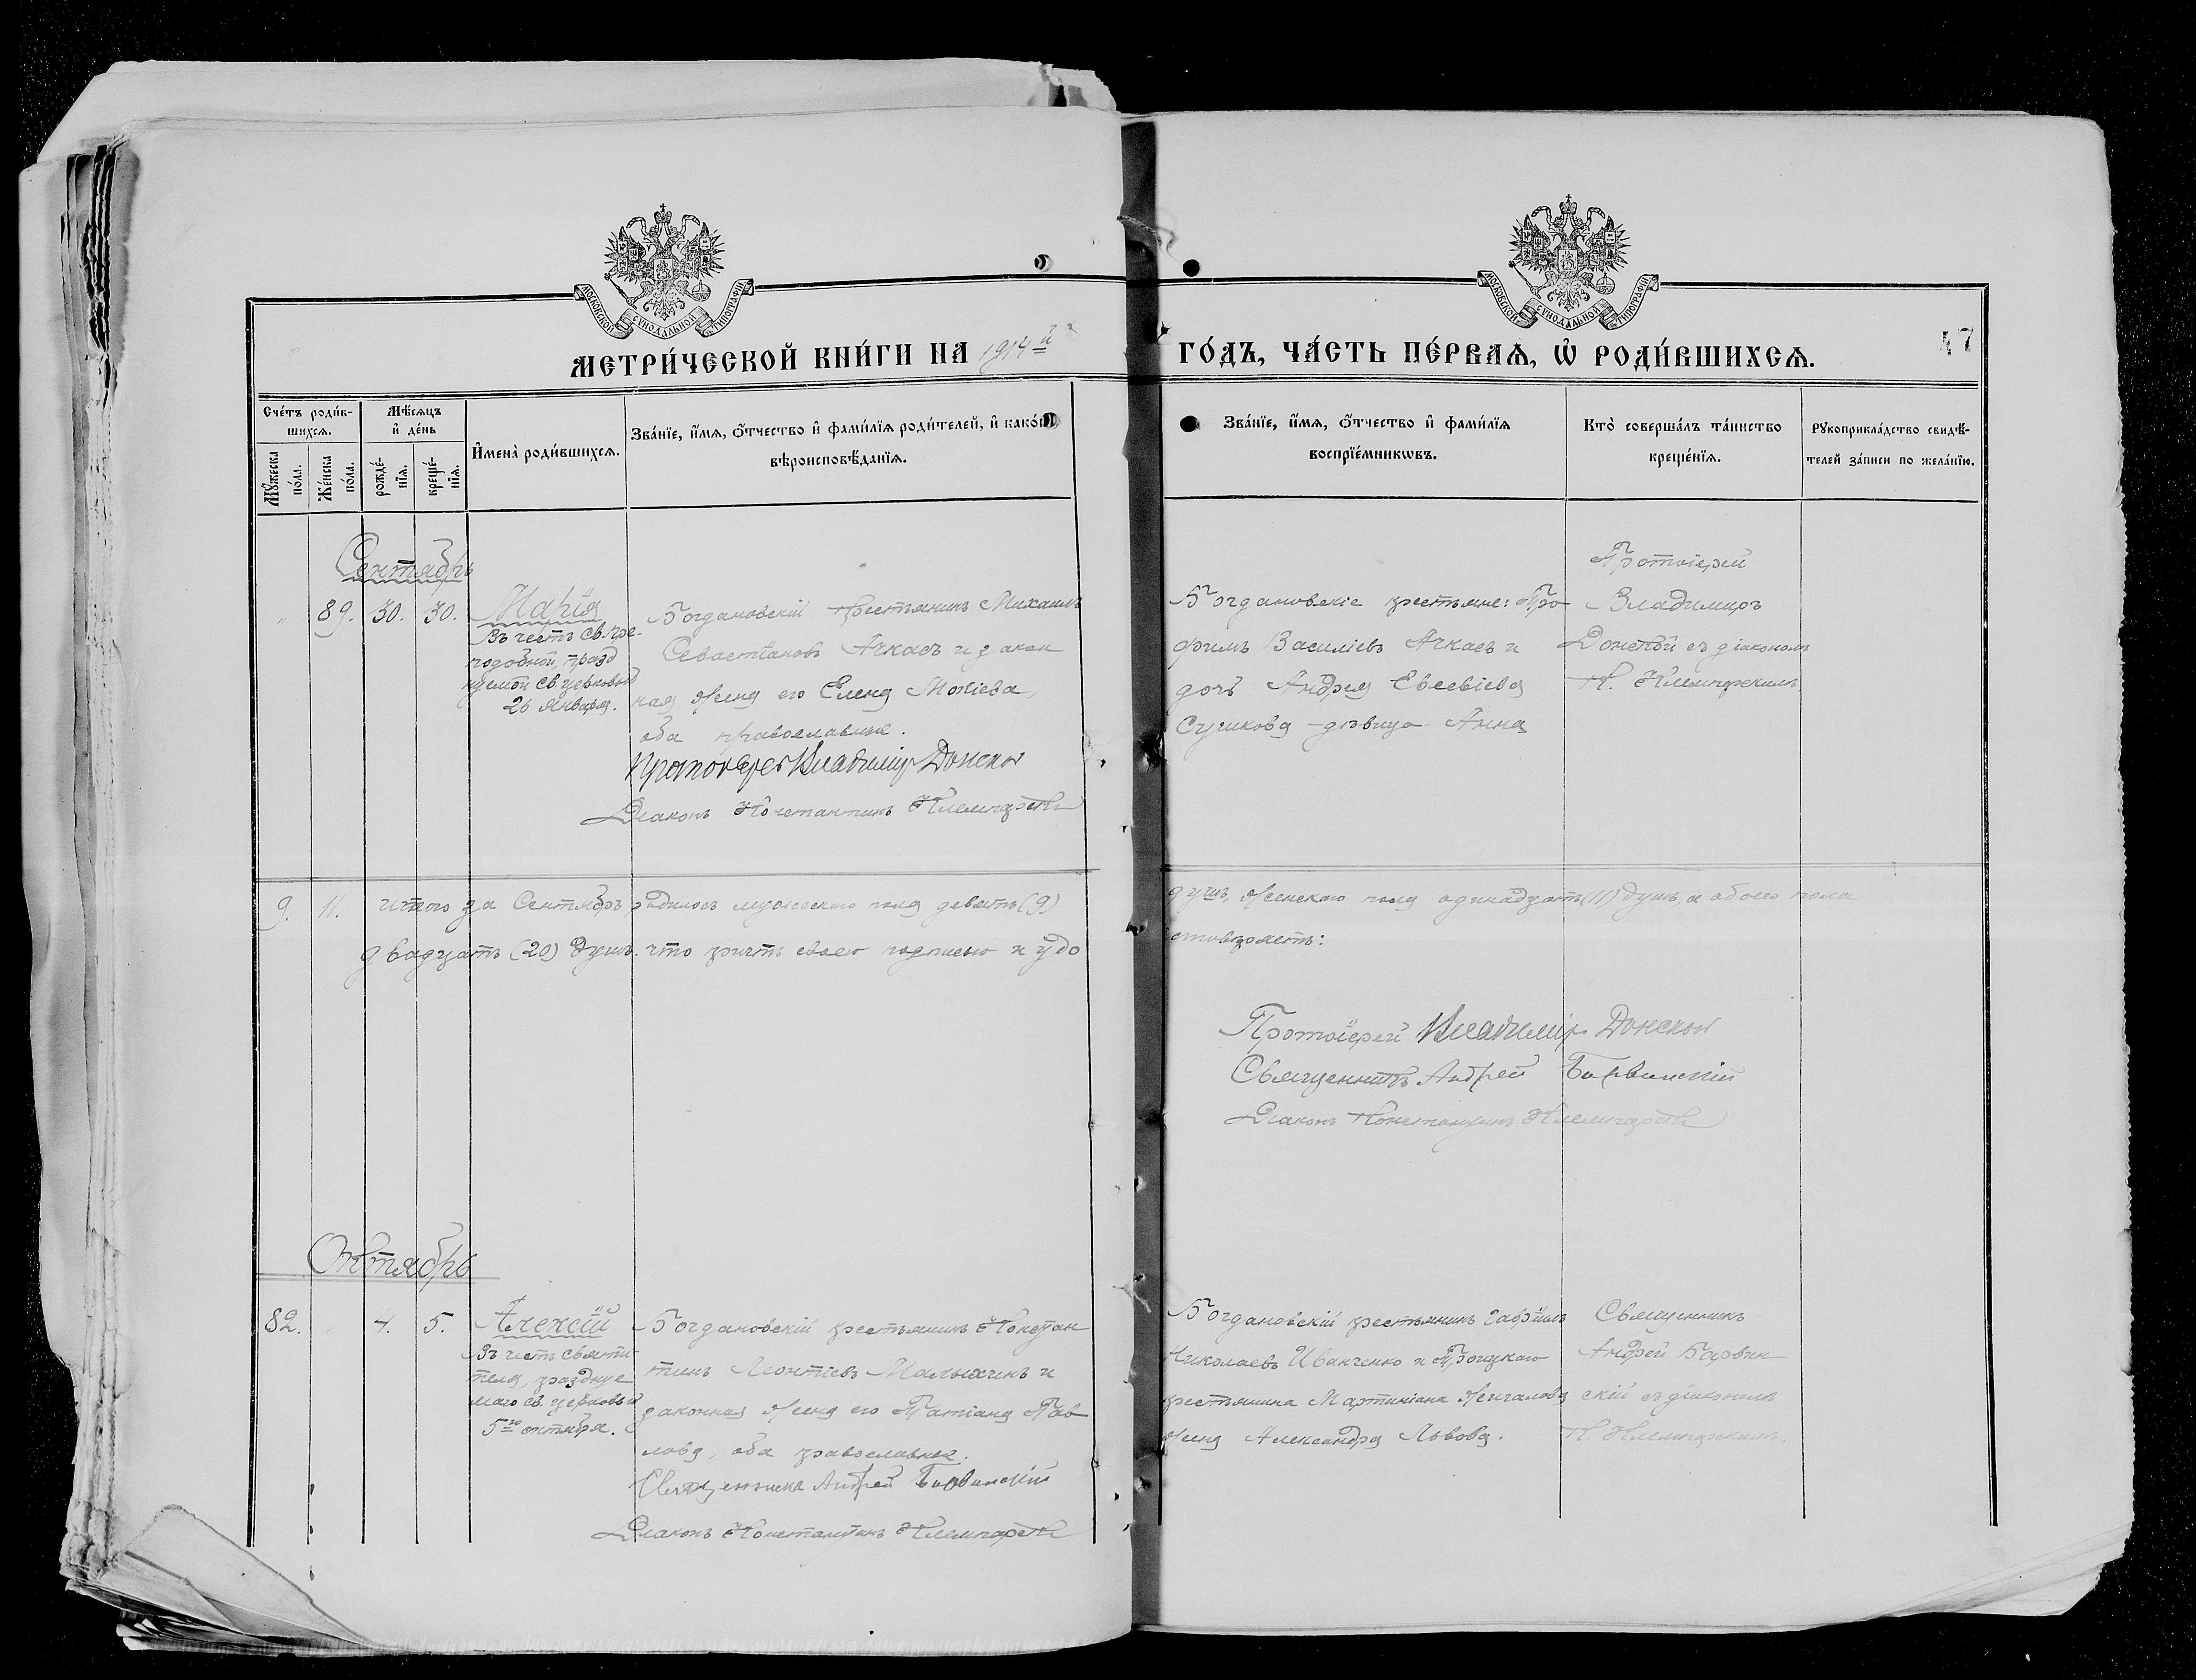 МОСКОВСКОЙ СѴНОДАЛЬНОЙ ТИПОГРАФІИ
МОСКОВСКОЙ СѴНОДАЛЬНОЙ ТИПОГРАФІИ
МЕТРИ́ЧЕСКОЙ КНИ́ГИ НА 1914й ГО́ДЪ, ЧА́СТЬ ПЕ́РВАѦ, Ѡ҆ РОДИ́ВШИХСѦ.
47
Сче́тъ роди́в-
шихсѧ.
Мꙋ́жеска по́ла.
Же́нска по́ла.
Мѣ́сѧцъ
и҆ де́нь
рожде́-
нїѧ.
креще́-
нїѧ.
И҆мена̀ роди́вшихсѧ.
Зва́нїе, и҆́мѧ, ѻ҆́тчество и҆ фами́лїѧ роди́телей, и҆ како́гѡ
вѣроисповѣ́данїѧ.
Зва́нїе, и҆́мѧ, ѻ҆́тчество и҆ фами́лїѧ
воспрїе́мникѡвъ.
Кто̀ соверша́лъ та́инство
креще́нїѧ.
Рꙋкоприкла́дство свидѣ́-
телей за́писи по жела́нїю.
Сентябрь
" 89. 30. 30. Марія
Въ честь Св. пре-
подобной, празд
нуемой Св. церковью
26 января.
Богдановскій крестьянинъ Михаилъ
Севастіановъ Ачкасъ и закон
ная жена его Елена Мокіева,
оба православные.
Протоіерей Владиміръ Донской
Діаконъ Константинъ
Богдановскіе крестьяне: Тро-
фимъ Василіевъ Ачкасъ и
дочь Андрея Евсевіева
Сушкова дѣвица Анна
Протоіерей
Владимиръ
Донской съ діакономъ
К.
9. 11. Итого за Сентябрь родилось мужескаго пола девять (9)
душъ, женскаго пола одинадцать (11) душъ, а обоего пола
двадцать (20) душъ, что причтъ своею подписью и удо
стовѣряетъ:
Протоіерей Владиміръ Донской
Священникъ Андрей Барвинскій
Діаконъ Константинъ
Октябрь
82. " 4. 5. Алексій
Въ честь святи-
теля, празднуе
маго св. церковью
5го октября.
Богдановскій крестьянинъ Констан
тинъ Леонтіевъ Малыхинъ и
законная жена его Татіана Пав
лова, оба православные.
Священникъ Андрей Барвинскій
Діаконъ Константинъ
Богдановскій крестьянинъ Гавріилъ
Николаевъ Иванченко и Троицкаго
крестьянина Мартиніана
жена Александра Львова.
Священникъ
Андрей Барвин
скій съ діакономъ
К.